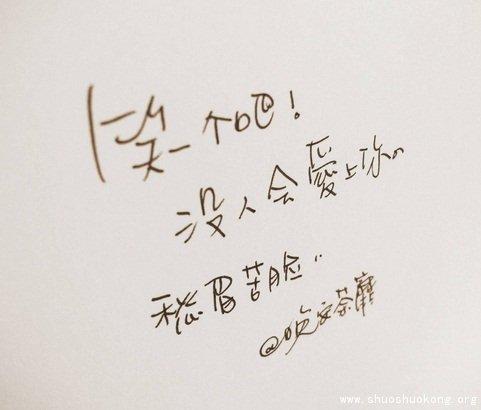 笑一个吧!
没人会爱上你的
愁眉苦脸..
@晚安荼蘼
www.shuoshuokong.org